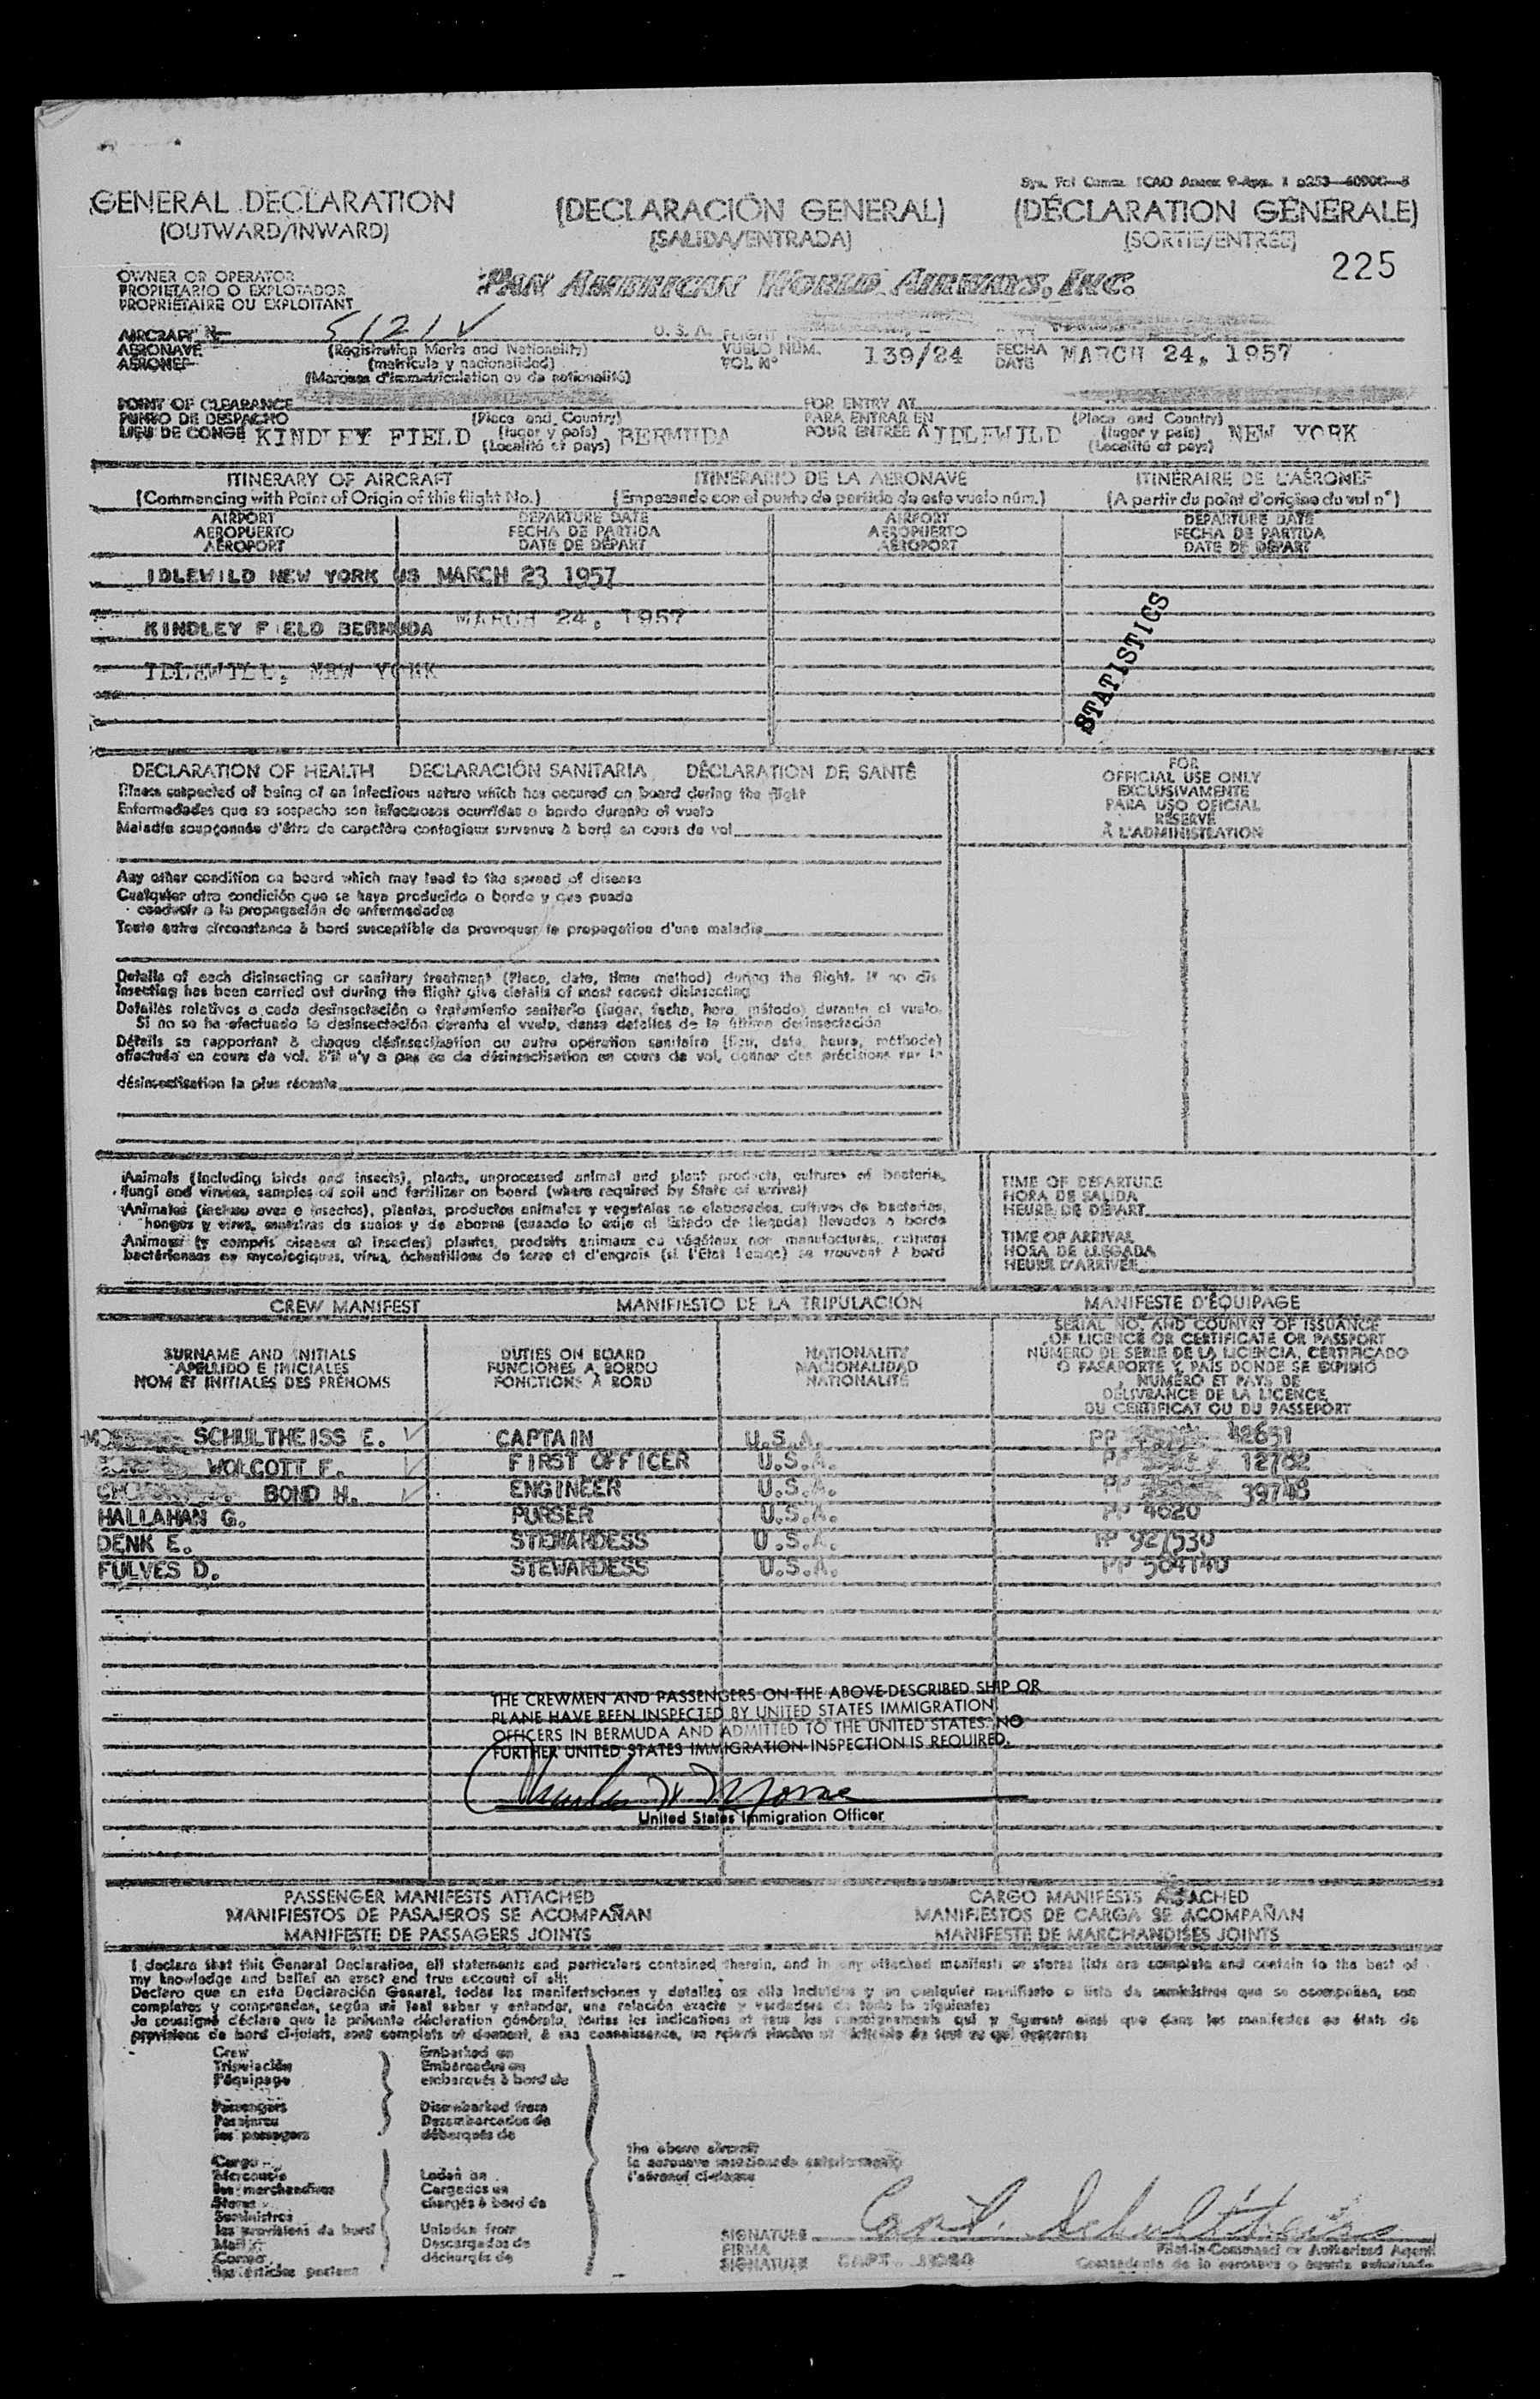 GENERAL DECLARATION (DECLARACIÓN GENERAL) (DÉCLARATION GÉNÉRALE)
(OUTWARD/INWARD) (SALIDA/ENTRADA) (SORTIE/ENTRÉE)
225
OWNER OR OPERATOR
PROPIETARIO O EXPLOTADOR
PROPRIÉTAIRE OU EXPLOITANT
PAN AMERICAN WORLD AIRWAYS, INC.
AIRCRAFT N 5121V U. S. A. FLIGHT
AERONAVE (Registration Marks and Nationality) VUELO NUM. 139/24 FECHA MARCH 24, 1957
AÉRONEF (matrícula y nacionalidad) VOL Nº DATE
(Marques d'immatriculation ou de nationalité)
POINT OF CLEARANCE FOR ENTRY AT
PUNTO DE DESPACHO (Place and Country) PARA ENTRAR EN (Place and Country)
LIEU DE CONGÉ KINDLEY FIELD (lugar y país) BERMUDA POUR ENTRÉE À IDLEWILD (lugar y país) NEW YORK
(Localité et pays) (Localité et pays)
ITINERARY OF AIRCRAFT ITINERARIO DE LA AERONAVE ITINÉRAIRE DE L'AÉRONEF
(Commencing with Point of Origin of this flight No.) (Empezando con el punto de partida de este vuelo núm.) (A partir du point d'origine du vol n°)
AIRPORT DEPARTURE DATE AIRPORT DEPARTURE DATE
AEROPUERTO FECHA DE PARTIDA AEROPUERTO FECHA DE PARTIDA
AÉROPORT DATE DE DÉPART AÉROPORT DATE DE DÉPART
IDLEWILD NEW YORK US MARCH 23 1957
KINDLEY FIELD BERMUDA MARCH 24, 1957
IDLEWILD, NEW YORK
STATISTICS
DECLARATION OF HEALTH DECLARACIÓN SANITARIA DÉCLARATION DE SANTÉ
Illness suspected of being of an infectious nature which has occured on board during the flight
Enfermedades que se sospecha son infecciosas ocurridas a bordo durante el vuelo
Maladie soupçonnée d'être de caractère contagieux survenue à bord en cours de vol
FOR
OFFICIAL USE ONLY
EXCLUSIVAMENTE
PARA USO OFICIAL
RÉSERVÉ
À L'ADMINISTRATION
Any other condition on board which may lead to the spread of disease
Cualquier otra condición que se haya producido a bordo y que pueda
conducir a la propagación de enfermedades
Toute autre circonstance à bord susceptible de provoquer la propagation d'une maladie
Details of each disinsecting or sanitary treatment (Place, date, time method) during the flight. If no dis
insecting has been carried out during the flight give details of most recent disinsecting
Detalles relativos a cada desinsectación o tratamiento sanitario (lugar, fecha, hora, método) durante el vuelo.
Si no se ha efectuado la desinsectación durante el vuelo, danse detalles de la última desinsectación
Détails se rapportant à chaque désinsectisation ou autre opération sanitaire (lieu, date, heure, méthode)
effectuée en cours de vol. S'il n'y a pas eu de désinsectisation en cours de vol, donner des précisions sur la
désinsectisation la plus récente
Animals (including birds and insects), plants, unprocessed animal and plant products, cultures of bacteria,
fungi and viruses, samples of soil and fertilizer on board (where required by State of arrival)
Animales (incluso aves e insectos), plantas, productos animales y vegetales no elaborados, cultivos de bacterias,
hongos y virus, muestras de suelos y de abonos (cuando lo exija el Estado de llegada) llevados a bordo
Animaux (y compris oiseaux et insectes) plantes, produits animaux ou végétaux non manufacturés, cultures
bactériennes ou mycologiques, virus, échantillons de terre et d'engrais (si l'État l'exige) se trouvant à bord
TIME OF DEPARTURE
HORA DE SALIDA
HEURE DE DÉPART
TIME OF ARRIVAL
HORA DE LLEGADA
HEURE D'ARRIVÉE
CREW MANIFEST MANIFIESTO DE LA TRIPULACIÓN MANIFESTE D'ÉQUIPAGE
SURNAME AND INITIALS DUTIES ON BOARD NATIONALITY SERIAL NO. AND COUNTRY OF ISSUANCE
APELLIDO E INICIALES FUNCIONES A BORDO NACIONALIDAD OF LICENCE OR CERTIFICATE OR PASSPORT
NOM ET INITIALES DES PRÉNOMS FONCTIONS À BORD NATIONALITÉ NÚMERO DE SERIE DE LA LICENCIA, CERTIFICADO
O PASAPORTE Y PAÍS DONDE SE EXPIDIÓ
NUMÉRO ET PAYS DE
DÉLIVRANCE DE LA LICENCE,
DU CERTIFICAT OU DU PASSEPORT
SCHULTHEISS E. CAPTAIN U.S.A. PP 42651
WOLCOTT F. FIRST OFFICER U.S.A. PP 12702
BOND H. ENGINEER U.S.A. PP 39748
HALLAHAN G. PURSER U.S.A. PP 4620
DENK E. STEWARDESS U.S.A. PP 927530
FULVES D. STEWARDESS U.S.A. PP 504140
THE CREWMEN AND PASSENGERS ON THE ABOVE-DESCRIBED SHIP OR
PLANE HAVE BEEN INSPECTED BY UNITED STATES IMMIGRATION
OFFICERS IN BERMUDA AND ADMITTED TO THE UNITED STATES. NO
FURTHER UNITED STATES IMMIGRATION INSPECTION IS REQUIRED.
United States Immigration Officer
PASSENGER MANIFESTS ATTACHED CARGO MANIFESTS ATTACHED
MANIFIESTOS DE PASAJEROS SE ACOMPAÑAN MANIFIESTOS DE CARGA SE ACOMPAÑAN
MANIFESTE DE PASSAGERS JOINTS MANIFESTE DE MARCHANDISES JOINTS
I declare that this General Declaration, all statements and particulars contained therein, and in any attached manifests or stores lists are complete and contain to the best of
my knowledge and belief an exact and true account of all:
Declaro que en esta Declaración General, todas las manifestaciones y detalles en ella incluidos y en cualquier manifiesto o lista de suministros que se acompañan, son
completos y comprenden, según mi leal saber y entender, una relación exacta y verdadera de todo lo siguiente:
Je soussigné déclare que la présente déclaration générale, toutes les indications et tous les renseignements qui y figurent ainsi que dans les manifestes ou états de
provisions de bord ci-joints, sont complets et donnent, à ma connaissance, un relevé sincère et
Crew Embarked on
Tripulación Embarcados en
l'équipage embarqués à bord de
Passengers Disembarked from
Pasajeros Desembarcados de
les passagers débarqués de
the above aircraft
la aeronave mencionada anteriormente
l'aéronef ci-dessus
Cargo
Mercancía Laden on
les marchandises Cargados en
Stores chargés à bord de
Suministros
les provisions de bord Unladen from
Mail Descargados de
Correo déchargés de
les articles postaux
SIGNATURE Capt. Schultheiss
FIRMA Pilot-in-Command or Authorized Agent
SIGNATURE CAPT. Comandante de la aeronave o agente autorizado